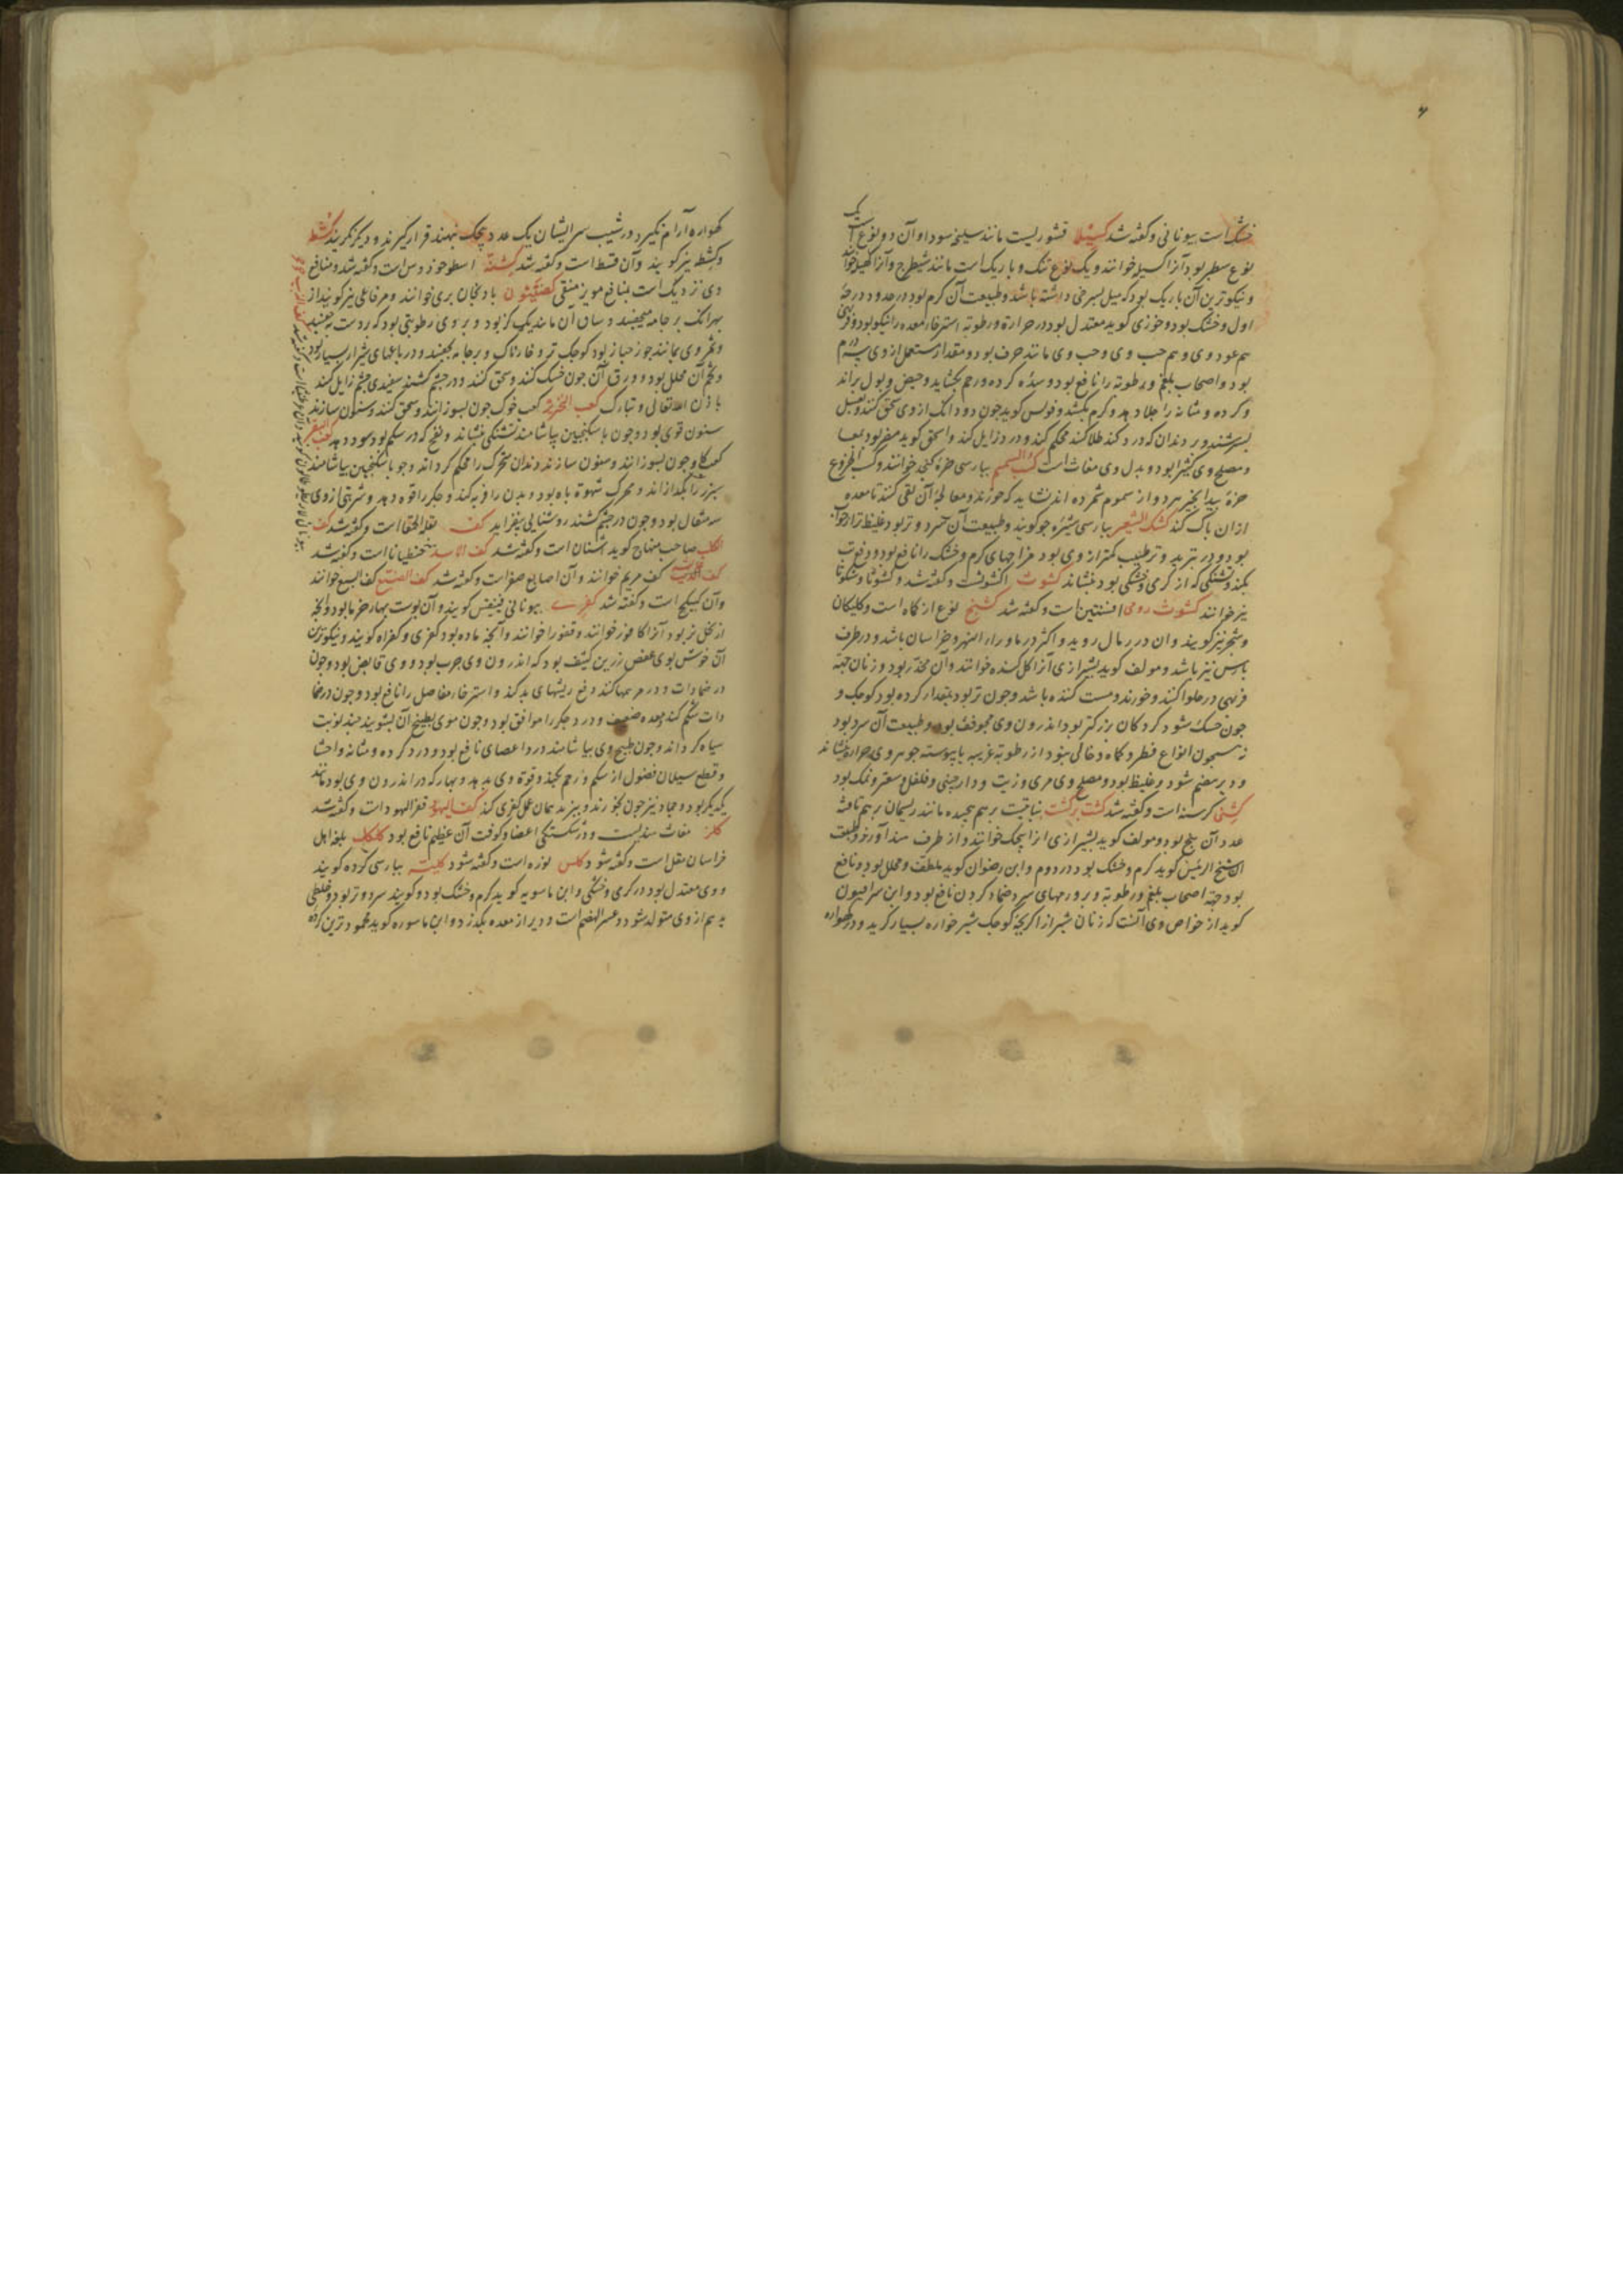 خشک است بیونانی و کفته شد کسیلا قشوریست مانند سلیخه سودا و آن دو نوع است یک
نوع سطبر بود آنرا کسیله خوانند و یک نوع تنک و باریک است مانند شیطرج و آنرا کهیلا خوانند
و نیکوترین آن باریک بود که میل بسرخی داشته باشد و طبیعت آن کرم بود در حدود درجه
اول و خشک بود و خوزی کوید معتدل بود در حرارة و رطوبه استرخاء معده را نیکو بود و فربهی
هم عود وی و هم حب وی و حب وی مانند حرف بود و مقدار مستعمل از وی سه درم
بود و اصحاب بلغم و رطوبه را نافع بود و سدّه کرده و رحم بکشاید و حیض و بول براند
و کرده و مثانه را جلا دهد و کرم بکشد و فولس کوید جون دو دانک از وی سحق کنند و بعسل
بسرشند و بر دندان که درد کند طلا کنند محکم کند و درد زایل کند و اسحق کوید مضر بود بمعا
و مصلح وی کثیرا بود و بدل وی مغاث است کسب السمسم بپارسی خره کنجی خوانند و کسب الخروع
خره بیدانجیر هر دو از سموم شمرده اند نشاید که خورند و معالجه آن بقی کنند تا معده
از ان پاک کند کشک الشعیر بپارسی شیره جو کویند و طبیعت آن سرد و تر بود و غلیظ تر از جواب
بود و در تبرید و ترطیب کمتر از وی بود مزاجهای کرم و خشک را نافع بود و دفع تب
بکند و تشنکی که از کرمی و خشکی بود بنشاند کشوث اکشوث است و کفته شد و کشوثا و شکوثا
نیز خوانند کشوث رومی افسنتین است و کفته شد کشنج نوع از کماه است و کلیکان
و شجر نیز کویند و ان در رمال روید و اکثر در ماوراء النهر و خراسان باشد و در طرف
پارس نیز باشد و مولف کوید بشیرازی آنرا کل کنده خوانند و آن مخدر بود و زنان جهة
فربهی در حلوا کنند و خورند و مست کننده باشد و جون تر بود بمقدار کرده بود کوچک و
جون خشک شود کردکان بزرکتر بود اندرون وی مجوف بود و طبیعت آن سرد بود
نه همچون انواع فطر و کماه و خالی نبود از رطوبة غریبه با پیوسته جوهر وی حرارة بنشاند
و دیر هضم شود و غلیظ بود و مصلح وی مری و زیت و دارچینی و فلفل و سعتر و نمک بود
کشنی کرسنه است و کفته شد کشت برکشت نباتیست برهم پیچیده مانند ریسمان برهم تافته
عدد آن پنج بود و مولف کوید بشیرازی انرا پیچک خوانند و از طرف هند آورند و طبیعت
ان شیخ الرئیس کوید کرم و خشک بود در دوم و ابن رضوان کوید ملطف و محلل بود و نافع
بود جهة اصحاب بلغم و رطوبة و بر ورمهای سرد ضماد کردن نافع بود و ابن سرافیون
کوید از خواص وی آنست که زنان شیراز اکر بچه کوچک شیرخواره بسیار کرید و در کهواره
کهواره آرام نکیرد در شیب سر ایشان یک عدد پیچک بنهند قرار کیرند و دیکر نکریند کشط
و کشطه نیز کویند و آن قسط است و کفته شد کشته اسطوخودوس است و کفته شد و منافع
وی نزدیک است بمنافع مویز منقی کضیثون بادنجان بری خوانند و مرفاعلی نیز کویند از
بهر انک بر جامه میچفسد و ساق آن مانند یک کز بود و بر وی رطوبتی بود که بر دست بچفسد
و ثمر وی بمانند جوز خباز بود کوچک تر و خارناک و بر جامه بچفسد و در باغهای شیراز بسیار بود
و تخم آن محلل بود و ورق آن جون خشک کنند و سحق کنند و در چشم کشند سفیدی چشم زایل کند
باذن الله تعالی و تبارک کعب الخنزیر کعب خوک جون بسوزانند و سحق کنند و سنون سازند
سنون قوی بود و جون با سکنجبین بیاشامند تشنکی بنشاند و نفخ که در شکم بود سود دهد کعب البقر
کعب کاو جون بسوزانند و سنون سازند دندان متحرک را محکم کرداند و جو با سکنجبین بیاشامند
سپرز را بکدازاند و محرک شهوة باه بود و بدن را فربه کند و جکر را قوة دهد و شربتی از وی
سه مثقال بود و جون در چشم کشند روشنایی بیفزاید کف بقلة الحمقا است و کفته شد کف
الکلب صاحب منهاج کوید اشنان است و کفته شد کف الاسد خمنطیانا است و کفته شد
کف الدب کف مریم خوانند و آن اصابع صفر است و کفته شد کف الضبع کف السبع خوانند
وآن کبیکج است و کفته شد کفری بیونانی فینیقس کویند و آن پوست بهار خرما بود و آنچه
از نخل نر بود آنرا کافور خوانند و قفور را خوانند و آنچه ماده بود کفری و کفراه کویند و نیکوترین
آن خوش بوی عفص زرین کثیف بود که اندرون وی چرب بود و وی قابض بود و جون
در ضمادات و در مرهمها کنند دفع ریشهای بد کند و استرخاء مفاصل را نافع بود و جون در ضما
دات شکم کنند معده ضعیف و درد جکر را موافق بود و جون موی بطبیخ آن بشویند چند نوبت
سیاه کرداند و جون طبیخ وی بیاشامند درد اعصای نافع بود و درد کرده و مثانه و احشا
و قطع سیلان فضول از شکم و رحم بکند و قوة وی بدهد و بهار که در اندرون وی بود مانند
یکدیکر بود و جمار نیز جون بخورند و بپزند همان عمل کفری کند کف الیهود قفر الیهود است و کفته شد
کلز مغاث هندیست و در شکستکی اعضا و کوفت آن عظیم نافع بود کلکلان بلغة اهل
خراسان مقل است و کفته شود کلس نوره است و کفته شود کلیته بپارسی کرده کویند
و وی معتدل بود در کرمی و خشکی و ابن ماسویه کوید کرم و خشک بود و کویند سرد و تر بود و خلطی
بد هم از وی متولد شود و عسر الهضم است و دیر از معده بکذرد و ابن ماسویه کوید محمودترین کرده